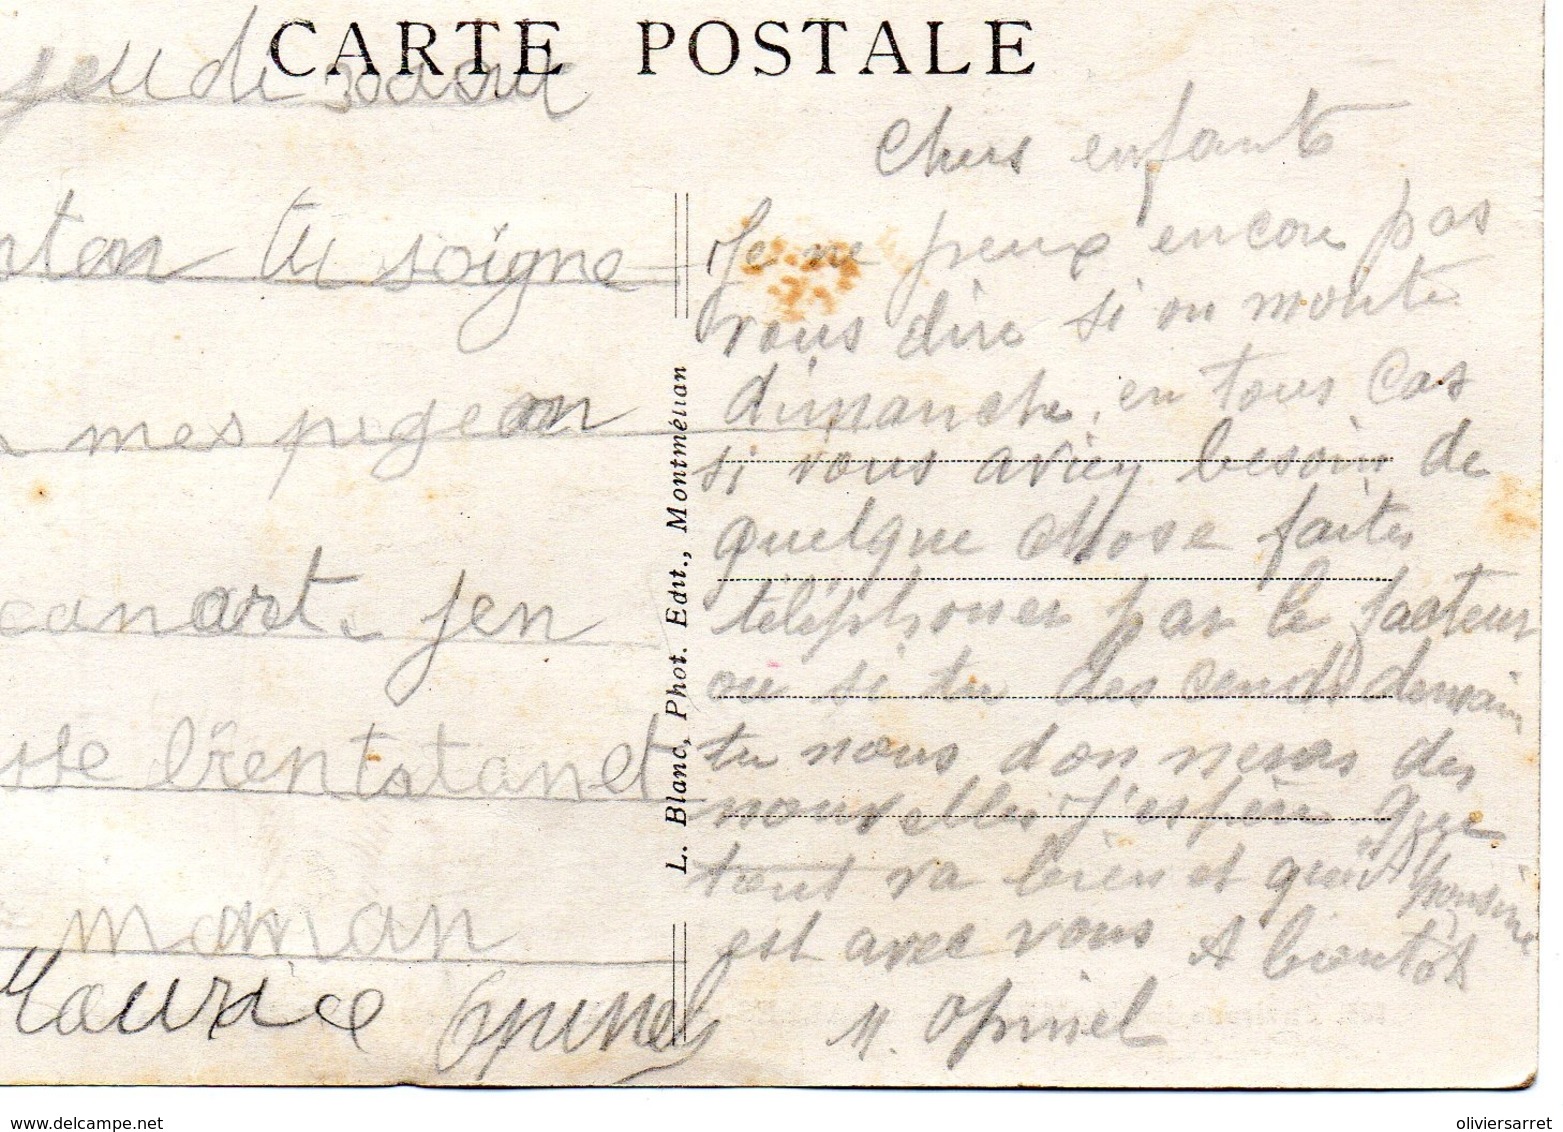 CARTE POSTALE
jeudi 30 aout
ton tu soigne
mes pigeon
canart. jen
maman
Maurice Opinel
L. Blanc, Phot. Edit., Montmélian
Chers enfants
Je ne peux encore pas
vous dire si on monte
dimanche, en tous cas
si vous aviez besoin de
quelque chose faites
téléphoner par le facteur
ou si tu descends demain
tu nous donneras des
nouvelles J'espère que
tout va bien et que Alphonsine
est avec vous A bientôt
M. Opinel
www.delcampe.net
oliviersarret